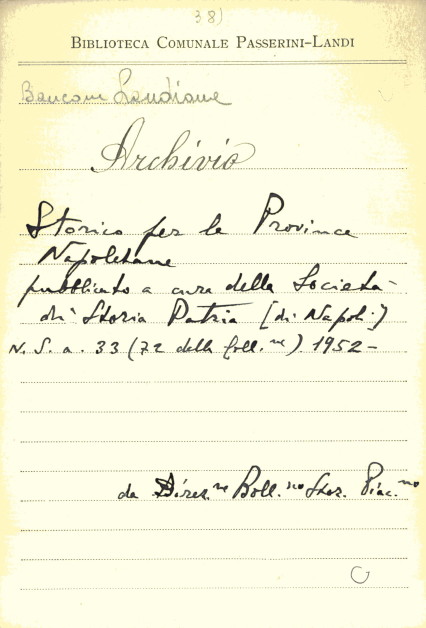 38)
BIBLIOTECA COMUNALE PASSERINI-LANDI
Bancone Landiane
Archivio
Storico per le Province
Napoletane
pubblicato a cura della Società
di Storia Patria [di Napoli]
N. S. a. 33 (72 della Coll.ne) 1952-
da Direz.ne Boll.no Stor. Piac.no